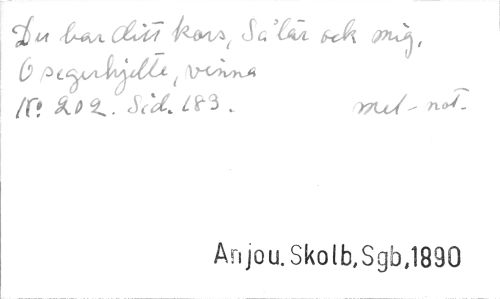 Du bar ditt kors, Så lär ock mig,
O segerhjelte, vinna
No. 202. Sid. 183. mel-not.
Anjou. Skolb, Sgb, 1890